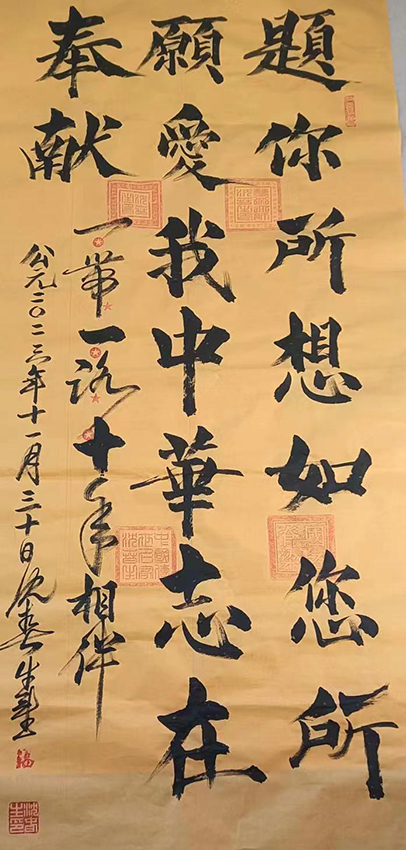 題你所想如您所
願愛我中華志在
奉献
一带一路十年相伴
公元二〇二三年十一月三十日沈春生书